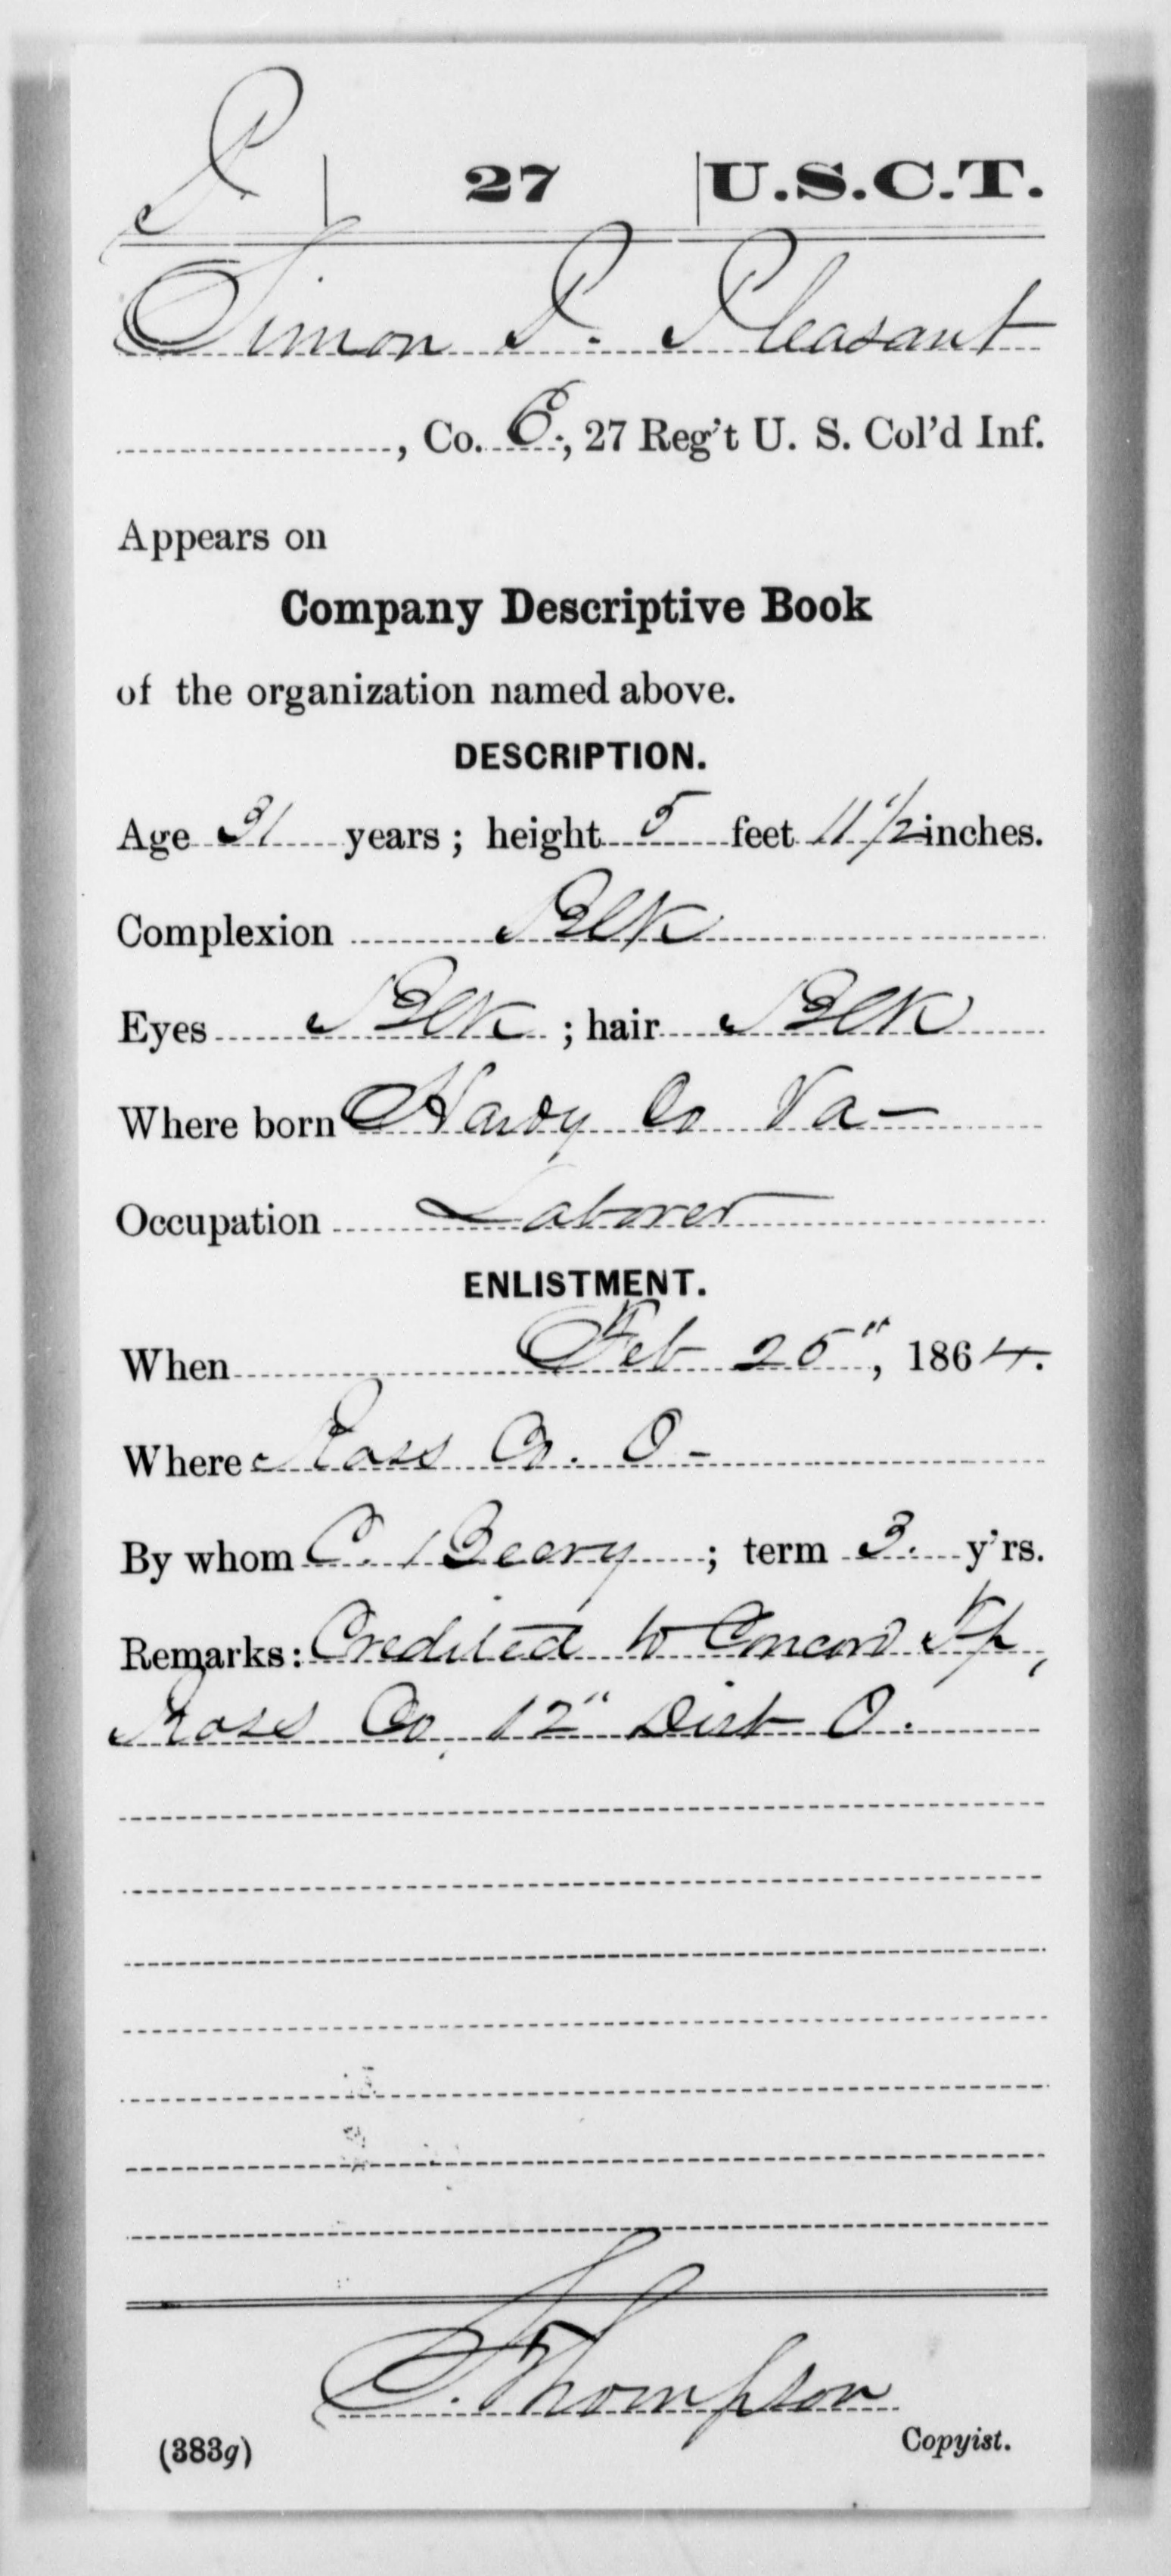 P | 27 | U.S.C.T.
Simon P. Pleasant
, Co. E, 27 Reg't U. S. Col'd Inf.
Appears on
Company Descriptive Book
of the organization named above.
DESCRIPTION.
Age 31 years; height 5 feet 11 1/2 inches.
Complexion Blk
Eyes Blk; hair Blk
Where born Hardy Co Va-
Occupation Laborer
ENLISTMENT.
When Feb 25", 1864.
Where Ross Co. O-
By whom C. Beery; term 3. y'rs.
Remarks: Credited to Concord Tp,
Ross Co, 12" Dist O.
S. Thompson
(383g) Copyist.